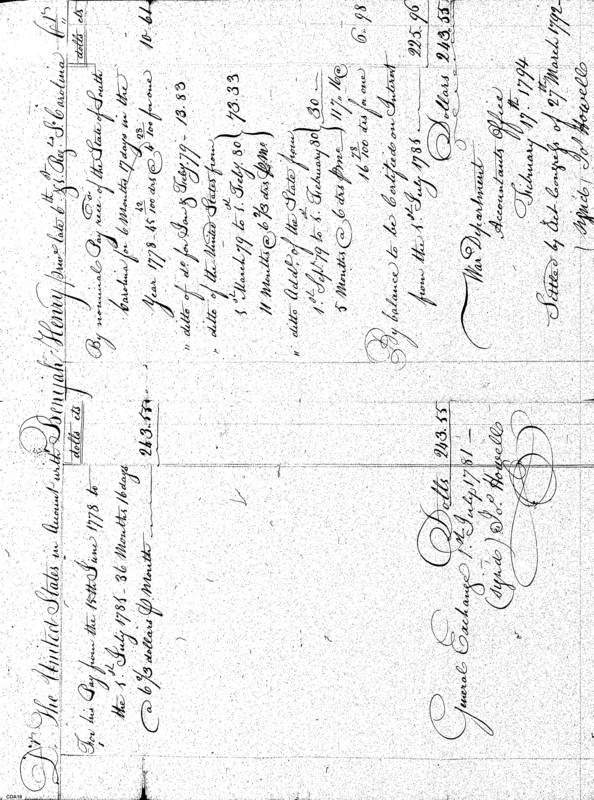 Dr. The United States in Account with Benijah Henry priv.e late 6th & 1st Reg. S.o Carolina Cr.
dolls cts
For his Pay from the 15th June 1778 to
the 1st July 1781 - 36 Months 16 days
@ 6 2/3 dollars P Month 243.55
Dolls 243.55
General Exchange 1st July 1781 -
(sign'd) Jos. Howell
dolls cts
By nominal Pay rec'd of the State of South
Carolina for 6 Months 17 days in the
Year 1778
" ditto of do for Jan & July 79 - 13.83
" ditto of the United States from
1st March 79 to 1. Feby. 80 } 73.33
11 Months @ 6 2/3 drs P Mo
" ditto Add. of the State from
1st Sep. 79 to 1. February 80 } 30
5 Months @ 6 drs P mo } 117. 16 @
16 78/100 drs for one 6. 98
By balance to be Certified on Interest
from the 1st July 1781 225.96
Dollars 243.55
War Department
Accountants Office
February 17th 1794
Settled by Act Congress of 27th March 1792
(sign'd) Jos. Howell
CDA18